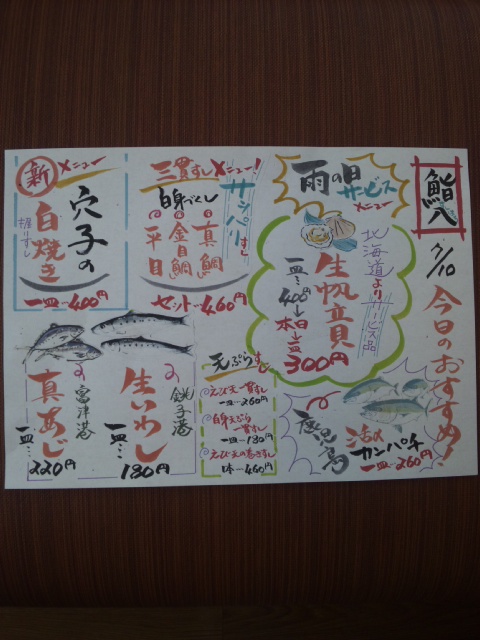 鮨八
7/10
今日のおすすめ!
雨の日
サービス
メニュー
北海道よりサービス品
生帆立貝
一皿…400円→本日一皿
300円
活〆
カンパチ
一皿…260円
三貫すしメニュー!
サッパリすし
白身づくし
真鯛
金目鯛
平目
セット…460円
天ぷらすし
えび天一貫すし
一皿…260円
白身天ぷら
一貫すし
一皿…180円
えび天の巻きすし
1本…460円
新メニュー
穴子の
白焼き
握りすし
一皿…400円
銚子港
生いわし
一皿…
180円
富津港
真あじ
一皿…
220円